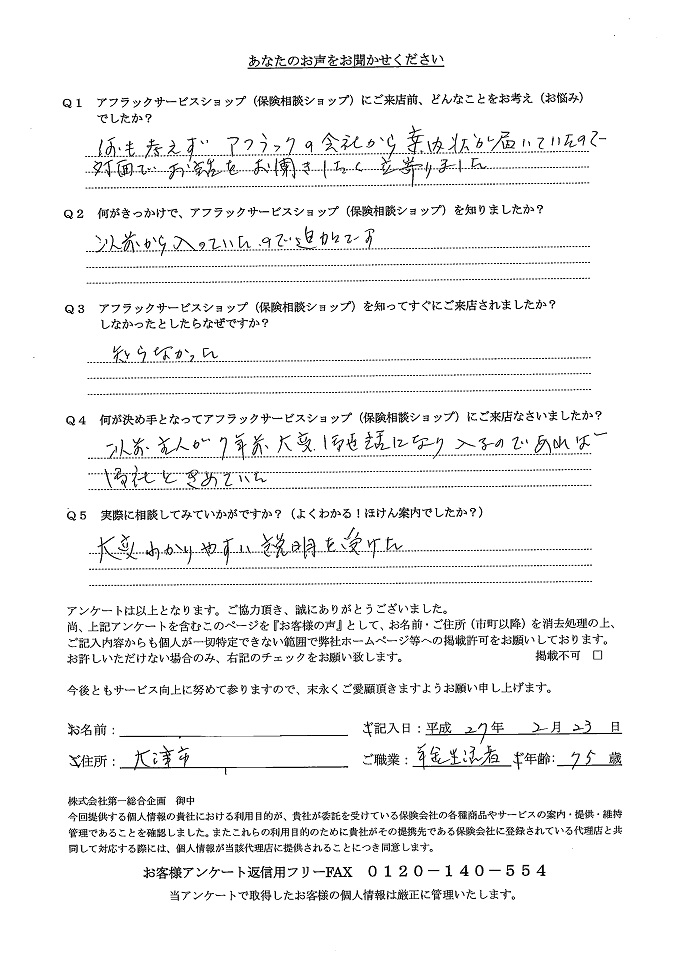 あなたのお声をお聞かせください
Q1 アフラックサービスショップ（保険相談ショップ）にご来店前、どんなことをお考え（お悩み）
でしたか？
何も考えず アフラックの会社から案内状が届いていたので
対面でお話をお聞きしたく立寄りました
Q2 何がきっかけで、アフラックサービスショップ（保険相談ショップ）を知りましたか？
以前から入っていたので追加です
Q3 アフラックサービスショップ（保険相談ショップ）を知ってすぐにご来店されましたか？
しなかったとしたらなぜですか？
知らなかった
Q4 何が決め手となってアフラックサービスショップ（保険相談ショップ）にご来店なさいましたか？
以前主人が7年前大変御世話になり入るのであれば
御社ときめていた
Q5 実際に相談してみていかがですか？（よくわかる！ほけん案内でしたか？）
大変わかりやすい説明を受けた
アンケートは以上となります。ご協力頂き、誠にありがとうございました。
尚、上記アンケートを含むこのページを『お客様の声』として、お名前・ご住所（市町以降）を消去処理の上、
ご記入内容からも個人が一切特定できない範囲で弊社ホームページ等への掲載許可をお願いしております。
お許しいただけない場合のみ、右記のチェックをお願い致します。 掲載不可 □
今後ともサービス向上に努めて参りますので、末永くご愛顧頂きますようお願い申し上げます。
お名前： ご記入日：平成 27年 2月 23日
ご住所： 大津市 ご職業：年金生活者 ご年齢：75 歳
株式会社第一総合企画 御中
今回提供する個人情報の貴社における利用目的が、貴社が委託を受けている保険会社の各種商品やサービスの案内・提供・維持
管理であることを確認しました。またこれらの利用目的のために貴社がその提携先である保険会社に登録されている代理店と共
同して対応する際には、個人情報が当該代理店に提供されることにつき同意します。
お客様アンケート返信用フリーFAX 0120-140-554
当アンケートで取得したお客様の個人情報は厳正に管理いたします。